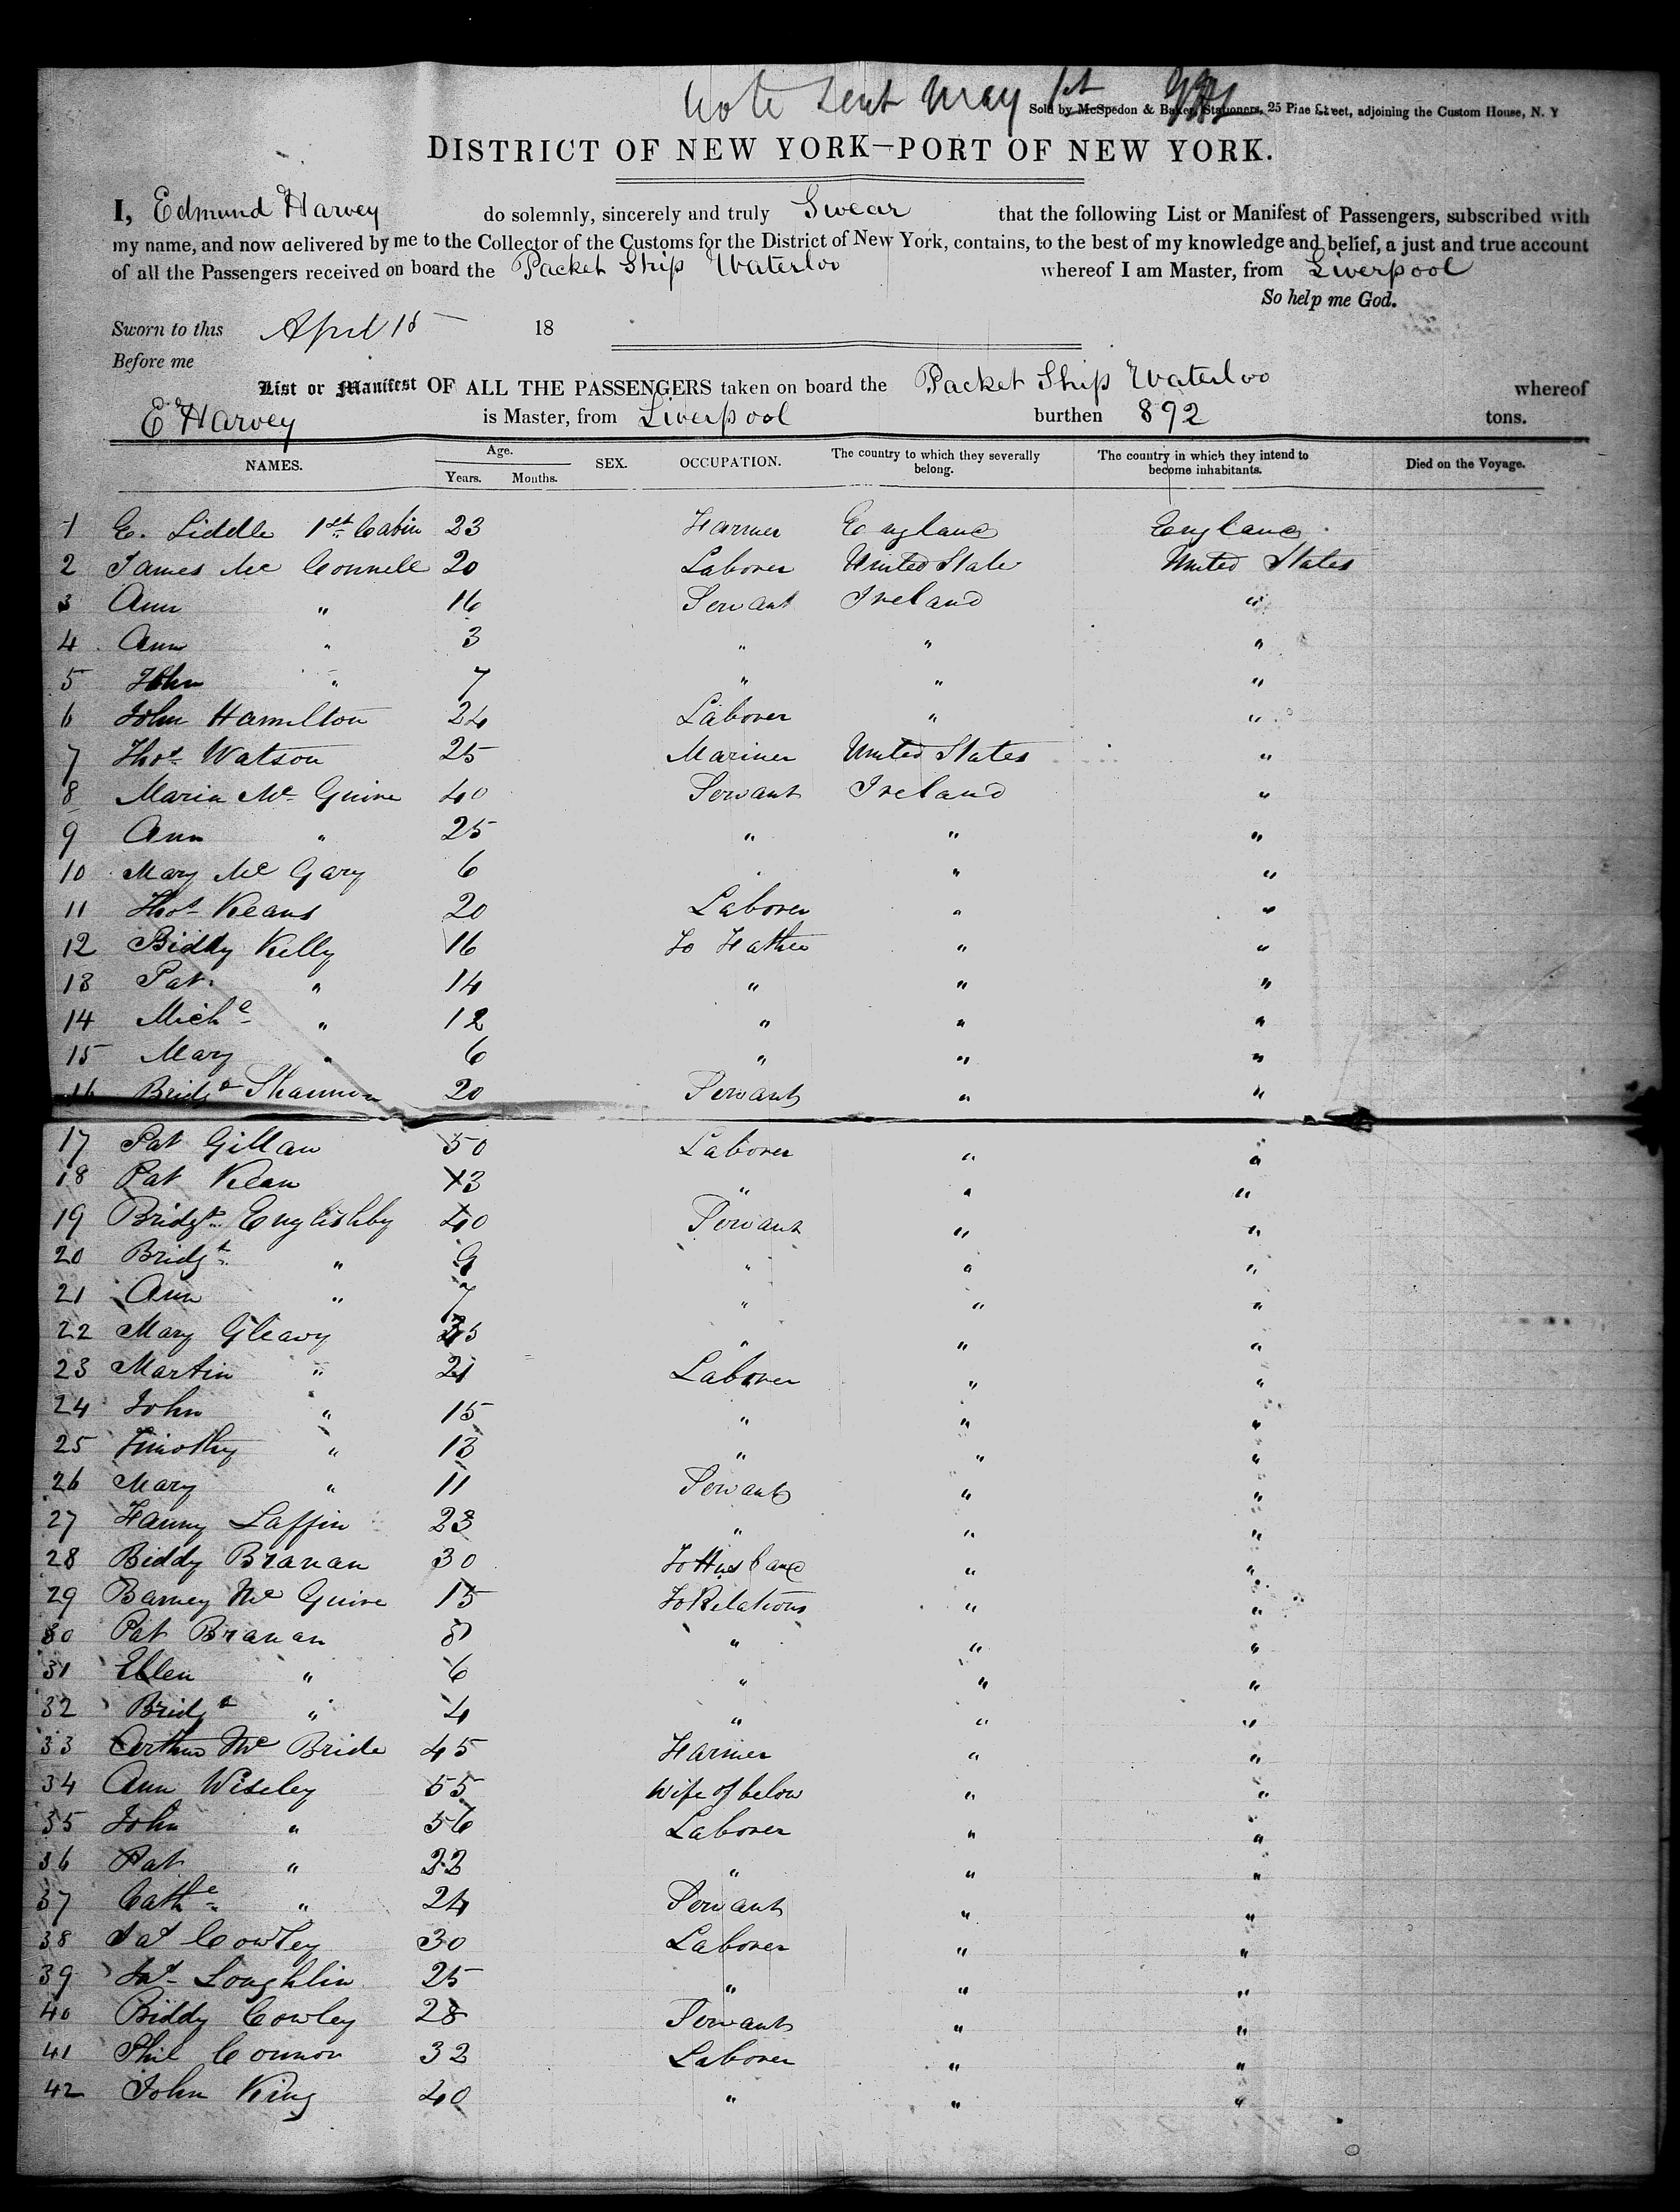 Note sent May 1st
Sold by McSpedon & Baker, Stationers, 25 Pine Street, adjoining the Custom House, N. Y
DISTRICT OF NEW YORK—PORT OF NEW YORK.
I, Edmund Harvey do solemnly, sincerely and truly Swear that the following List or Manifest of Passengers, subscribed with
my name, and now delivered by me to the Collector of the Customs for the District of New York, contains, to the best of my knowledge and belief, a just and true account
of all the Passengers received on board the Packet Ship Waterloo whereof I am Master, from Liverpool
So help me God.
Sworn to this April 18
Before me
List or Manifest OF ALL THE PASSENGERS taken on board the Packet Ship Waterloo whereof
E Harvey is Master, from Liverpool burthen 892 tons.
NAMES. Age. Years. Months. SEX. OCCUPATION. The country to which they severally belong. The country in which they intend to become inhabitants. Died on the Voyage.
1 E. Liddle 1st Cabin 23 Farmer England England
2 James Mc Connell 20 Laborer United State United States
3 Ann " 16 Servant Ireland "
4 Ann " 3 " " "
5 John " 7 " " "
6 John Hamilton 24 Laborer " "
7 Thos Watson 25 Mariner United States "
8 Maria Mc Guire 40 Servant Ireland "
9 Ann " 25 " " "
10 Mary Mc Gary 6 " " "
11 Thos Keans 20 Laborer " "
12 Biddy Kelly 16 To Father " "
13 Pat " 14 " " "
14 Michl " 12 " " "
15 Mary " 6 " " "
16 Bridgt Shannon 20 Servant " "
17 Pat Gillan 50 Laborer " "
18 Pat Kean 13 " " "
19 Bridgt Englishby 40 Servant " "
20 Bridgt " 9 " " "
21 Ann " 7 " " "
22 Mary Gleavy " " "
23 Martin " 21 Laborer " "
24 John " 15 " " "
25 Timothy " 13 " " "
26 Mary " 11 Servant " "
27 Fanny Laffin 23 " " "
28 Biddy Branan 30 To Husband " "
29 Barney Mc Guire 15 To Relations " "
30 Pat Branan 8 " " "
31 Ellen " 6 " " "
32 Bridgt " 4 " " "
33 Arthur Mc Bride 45 Farmer " "
34 Ann Wiseley 55 Wife of below " "
35 John " 56 Laborer " "
36 Pat " 22 " " "
37 Cathe " 24 Servant " "
38 Jas Cowley 30 Laborer " "
39 Jas Loughlin 25 " " "
40 Biddy Cowley 28 Servant " "
41 Phil Connor 32 Laborer " "
42 John King 40 " " "